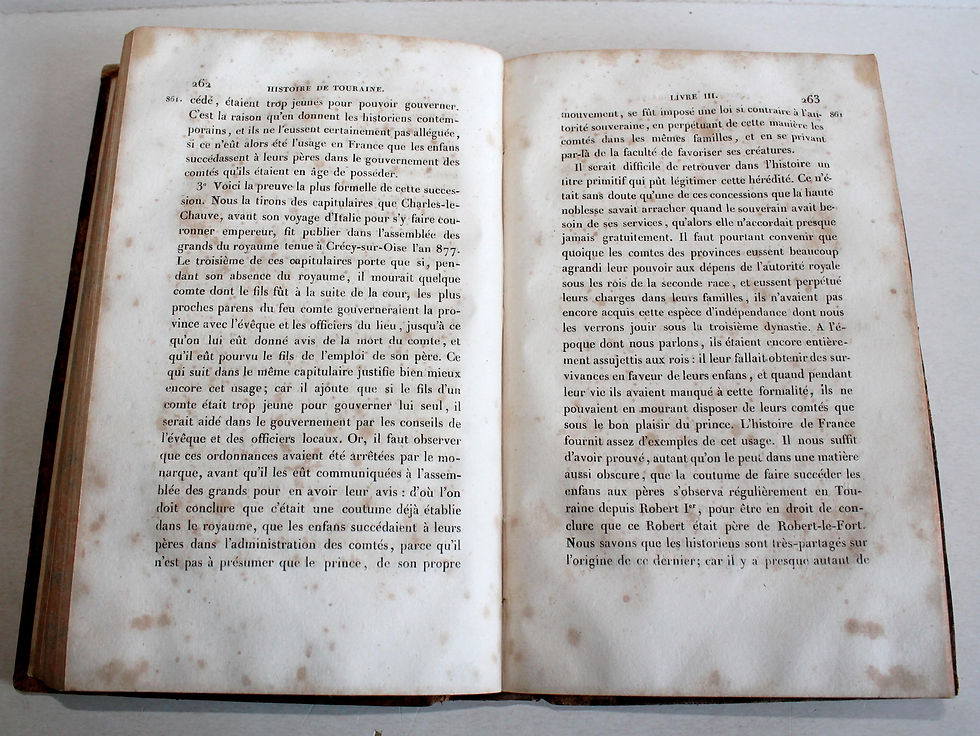 262
HISTOIRE DE TOURAINE.
861. cédé, étaient trop jeunes pour pouvoir gouverner.
C'est la raison qu'en donnent les historiens contem-
porains, et ils ne l'eussent certainement pas alléguée,
si ce n'eût alors été l'usage en France que les enfans
succédassent à leurs pères dans le gouvernement des
comtés qu'ils étaient en âge de posséder.
3° Voici la preuve la plus formelle de cette succes-
sion. Nous la tirons des capitulaires que Charles-le-
Chauve, avant son voyage d'Italie pour s'y faire cou-
ronner empereur, fit publier dans l'assemblée des
grands du royaume tenue à Crécy-sur-Oise l'an 877.
Le troisième de ces capitulaires porte que si, pen-
dant son absence du royaume, il mourait quelque
comte dont le fils fût à la suite de la cour, les plus
proches parens du feu comte gouverneraient la pro-
vince avec l'évêque et les officiers du lieu, jusqu'à ce
qu'on lui eût donné avis de la mort du comte, et
qu'il eût pourvu le fils de l'emploi de son père. Ce
qui suit dans le même capitulaire justifie bien mieux
encore cet usage; car il ajoute que si le fils d'un
comte était trop jeune pour gouverner lui seul, il
serait aidé dans le gouvernement par les conseils de
l'évêque et des officiers locaux. Or, il faut observer
que ces ordonnances avaient été arrêtées par le mo-
narque, avant qu'il les eût communiquées à l'assem-
blée des grands pour en avoir leur avis : d'où l'on
doit conclure que c'était une coutume déjà établie
dans le royaume, que les enfans succédaient à leurs
pères dans l'administration des comtés, parce qu'il
n'est pas à présumer que le prince, de son propre
LIVRE III.
263
mouvement, se fût imposé une loi si contraire à l'au- 861
torité souveraine, en perpétuant de cette manière les
comtés dans les mêmes familles, et en se privant
par-là de la faculté de favoriser ses créatures.
Il serait difficile de retrouver dans l'histoire un
titre primitif qui pût légitimer cette hérédité. Ce n'é-
tait sans doute qu'une de ces concessions que la haute
noblesse savait arracher quand le souverain avait be-
soin de ses services, qu'alors elle n'accordait presque
jamais gratuitement. Il faut pourtant convenir que
quoique les comtes des provinces eussent beaucoup
agrandi leur pouvoir aux dépens de l'autorité royale
sous les rois de la seconde race, et eussent perpétué
leurs charges dans leurs familles, ils n'avaient pas
encore acquis cette espèce d'indépendance dont nous
les verrons jouir sous la troisième dynastie. A l'é-
poque dont nous parlons, ils étaient encore entière-
ment assujettis aux rois : il leur fallait obtenir des sur-
vivances en faveur de leurs enfans, et quand pendant
leur vie ils avaient manqué à cette formalité, ils ne
pouvaient en mourant disposer de leurs comtés que
sous le bon plaisir du prince. L'histoire de France
fournit assez d'exemples de cet usage. Il nous suffit
d'avoir prouvé, autant qu'on le peut dans une matière
aussi obscure, que la coutume de faire succéder les
enfans aux pères s'observa régulièrement en Tou-
raine depuis Robert Ier, pour être en droit de con-
clure que ce Robert était père de Robert-le-Fort.
Nous savons que les historiens sont très-partagés sur
l'origine de ce dernier; car il y a presque autant de